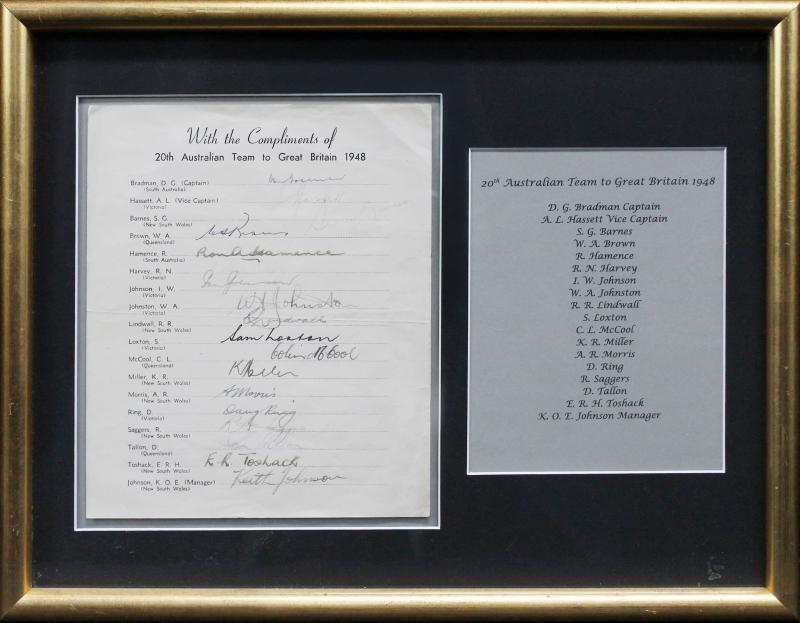 With the Compliments of
20th Australian Team to Great Britain 1948
Bradman, D. G. (Captain)
(South Australia)
Hassett, A. L. (Vice Captain)
(Victoria)
Barnes, S. G.
(New South Wales)
Brown, W. A.
(Queensland)
Hamence, R. Ron A Hamence
(South Australia)
Harvey, R. N.
(Victoria)
Johnson, I. W. Ian Johnson
(Victoria)
Johnston, W. A. W A Johnston
(Victoria)
Lindwall, R. R. Lindwall
(New South Wales)
Loxton, S. Sam Loxton
(Victoria)
McCool, C. L. Colin McCool
(Queensland)
Miller, K. R. K Miller
(New South Wales)
Morris, A. R. A Morris
(New South Wales)
Ring, D. Doug Ring
(Victoria)
Saggers, R.
(New South Wales)
Tallon, D. Don Tallon
(Queensland)
Toshack, E. R. H. E. R. Toshack
(New South Wales)
Johnson, K. O. E. (Manager) Keith Johnson
(New South Wales)
20th Australian Team to Great Britain 1948
D. G. Bradman Captain
A. L. Hassett Vice Captain
S. G. Barnes
W. A. Brown
R. Hamence
R. N. Harvey
I. W. Johnson
W. A. Johnston
R. R. Lindwall
S. Loxton
C. L. McCool
K. R. Miller
A. R. Morris
D. Ring
R. Saggers
D. Tallon
E. R. H. Toshack
K. O. E. Johnson Manager